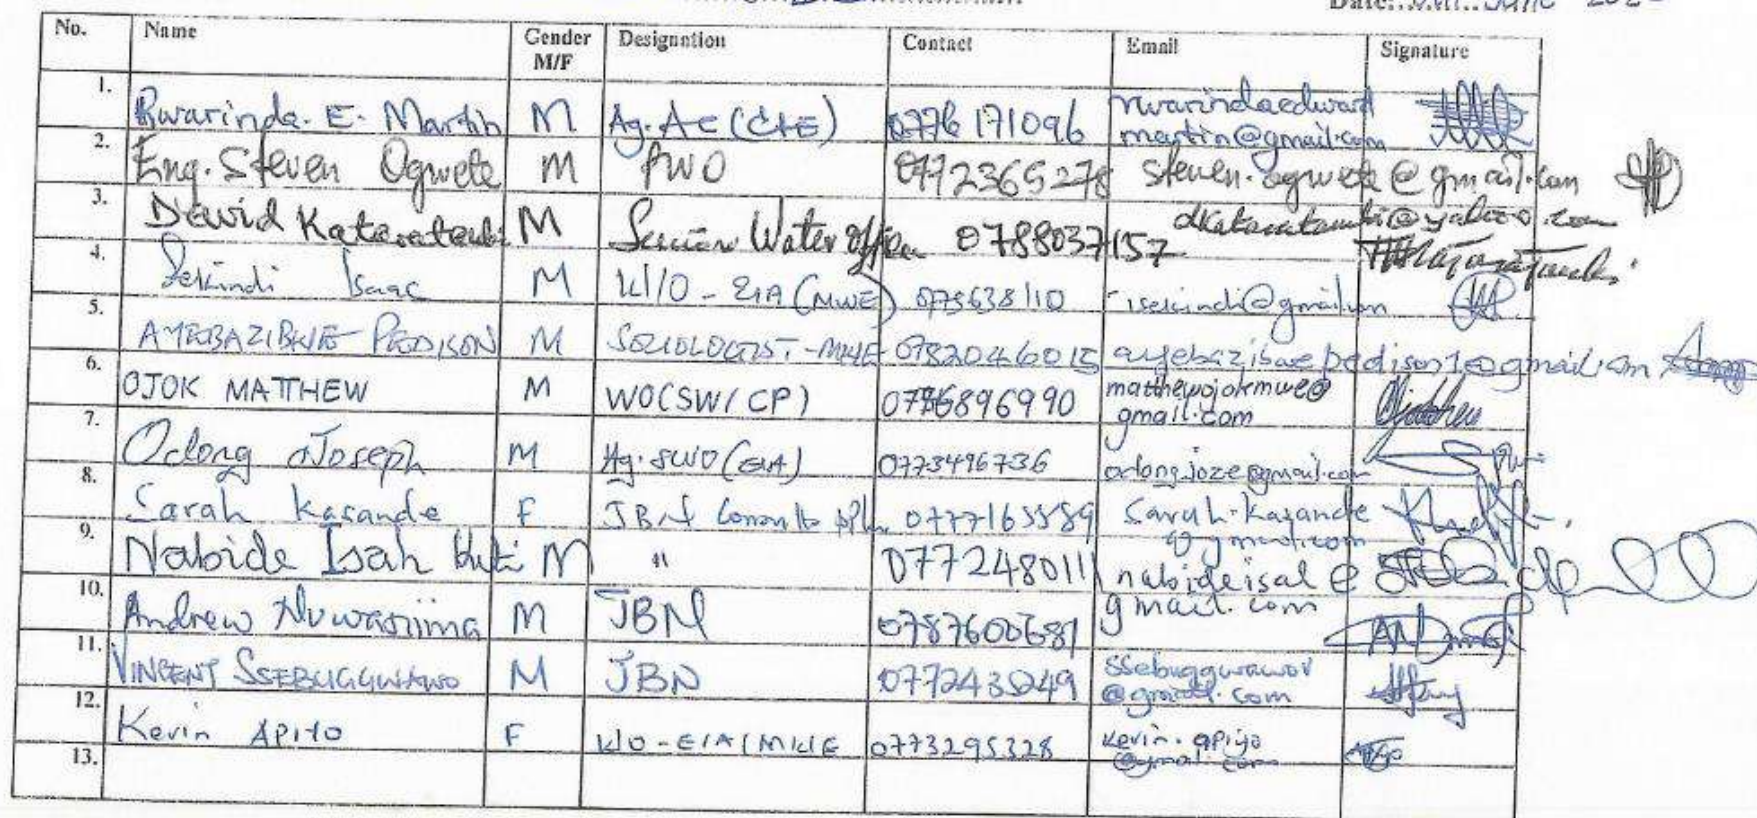 Date: June 202
No. Name Gender M/F Designation Contact Email Signature
1. Rwarinda. E. Martin M Ag. AC (CAE) 0776 171096 rwarindaedward martin@gmail.com
2. Eng. Steven Ogwete M PWO 0772365278 steven.ogwete@gmail.com
3. David Kataratambi M Senior Water Officer 0788037157 dkataratambi@yahoo.com
4. Sekindi Isaac M W/O - EIA (MWE) isekindi@gmail.com
5. M SOCIOLOGIST - MWE 0782046015
6. OJOK MATTHEW M WO(SW/CP) 0776896990 matthewojokmwe@ gmail.com
7. Odong Joseph M Ag. SWO (EIA) 0773496736 odong.joze@gmail.com
8. Sarah Kasande F JBN Consults 0777165589 Sarah.Kasande @gmail.com
9. Nabide Isah M " 0772480111 nabideisah@ gmail.com
10. Andrew Nuwasiima M JBN 0787600681
11. VINCENT SSEBUGGWAWO M JBN ssebuggwawov @gmail.com
12. Kevin APIYO F WO - EIA (MWE 0773295328 Kevin.apiyo @gmail.com
13.